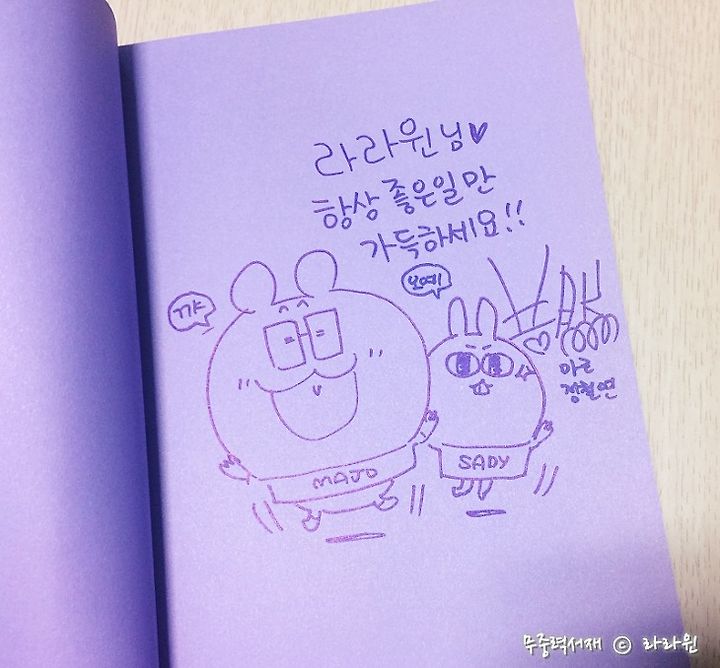 라라윈님♥
항상 좋은일만
가득하세요!!
꺄
보예!
마르
장철연
MAJO
SADY
무중력서재 ⓒ 라라윈